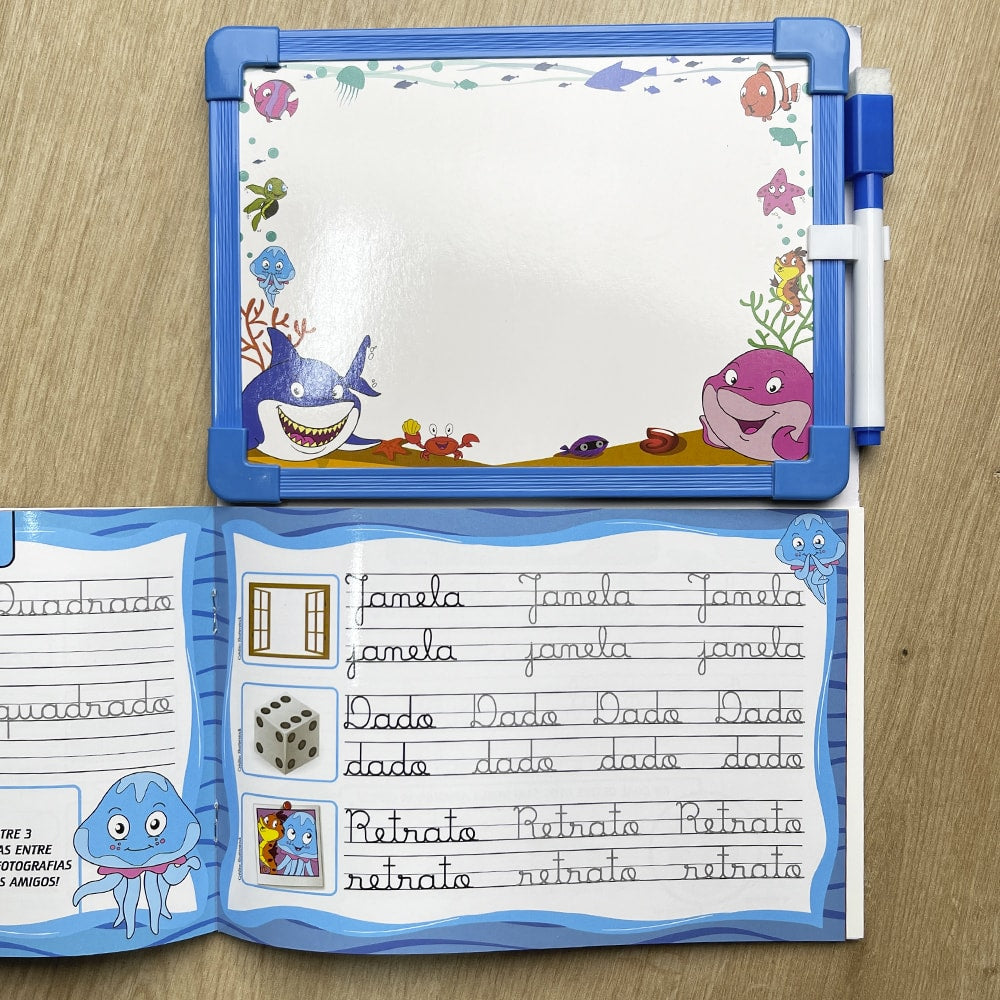 Quadrado
quadrado
TRE 3
AS ENTRE
FOTOGRAFIAS
S AMIGOS!
Janela Janela Janela
janela janela janela
Dado Dado Dado Dado
dado dado dado dado
Retrato Retrato Retrato
retrato retrato retrato